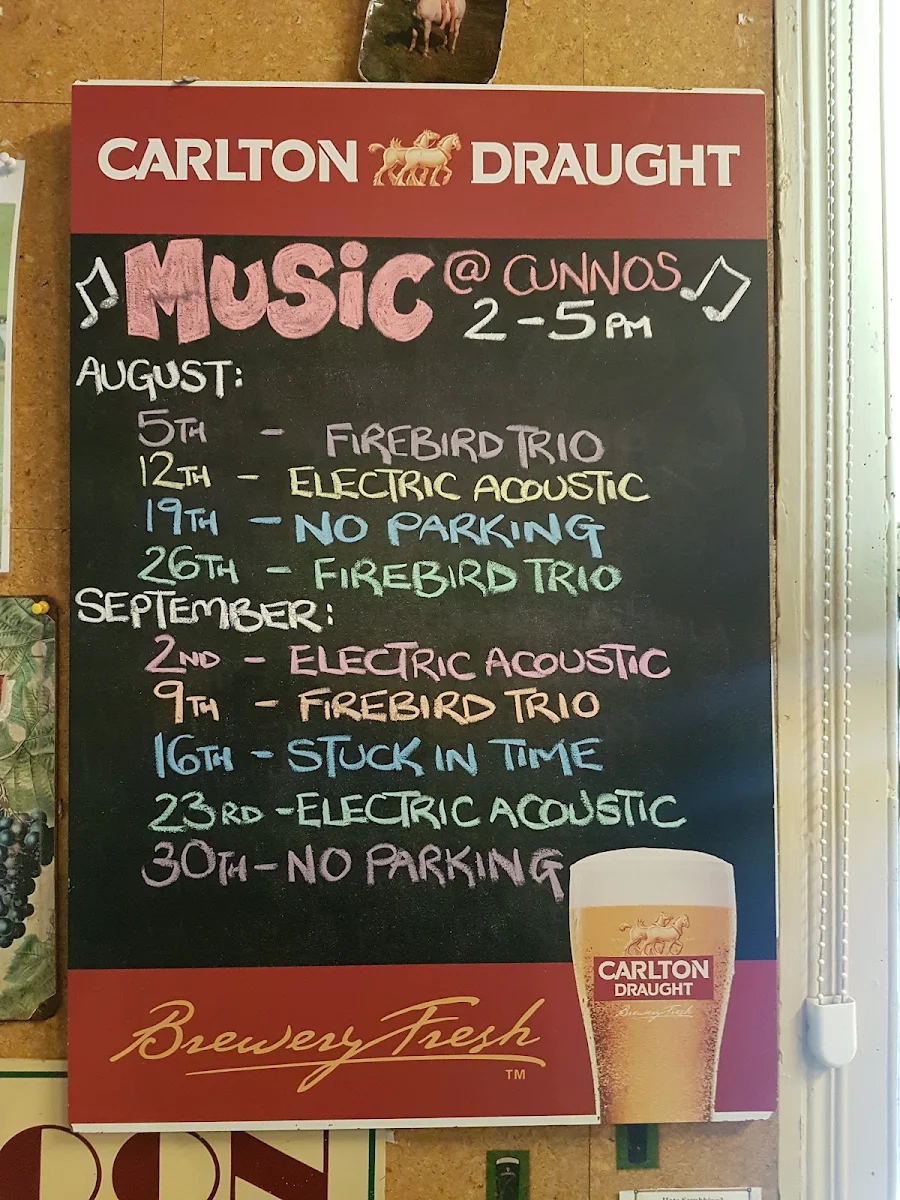 CARLTON DRAUGHT
MUSiC @ CUNNOS
2-5 PM
AUGUST:
5TH - FIREBIRD TRIO
12TH - ELECTRIC ACOUSTIC
19TH - NO PARKING
26TH - FIREBIRD TRIO
SEPTEMBER:
2ND - ELECTRIC ACOUSTIC
9TH - FIREBIRD TRIO
16TH - STUCK IN TIME
23RD - ELECTRIC ACOUSTIC
30TH - NO PARKING
CARLTON
DRAUGHT
Brewery Fresh
Brewery Fresh
TM